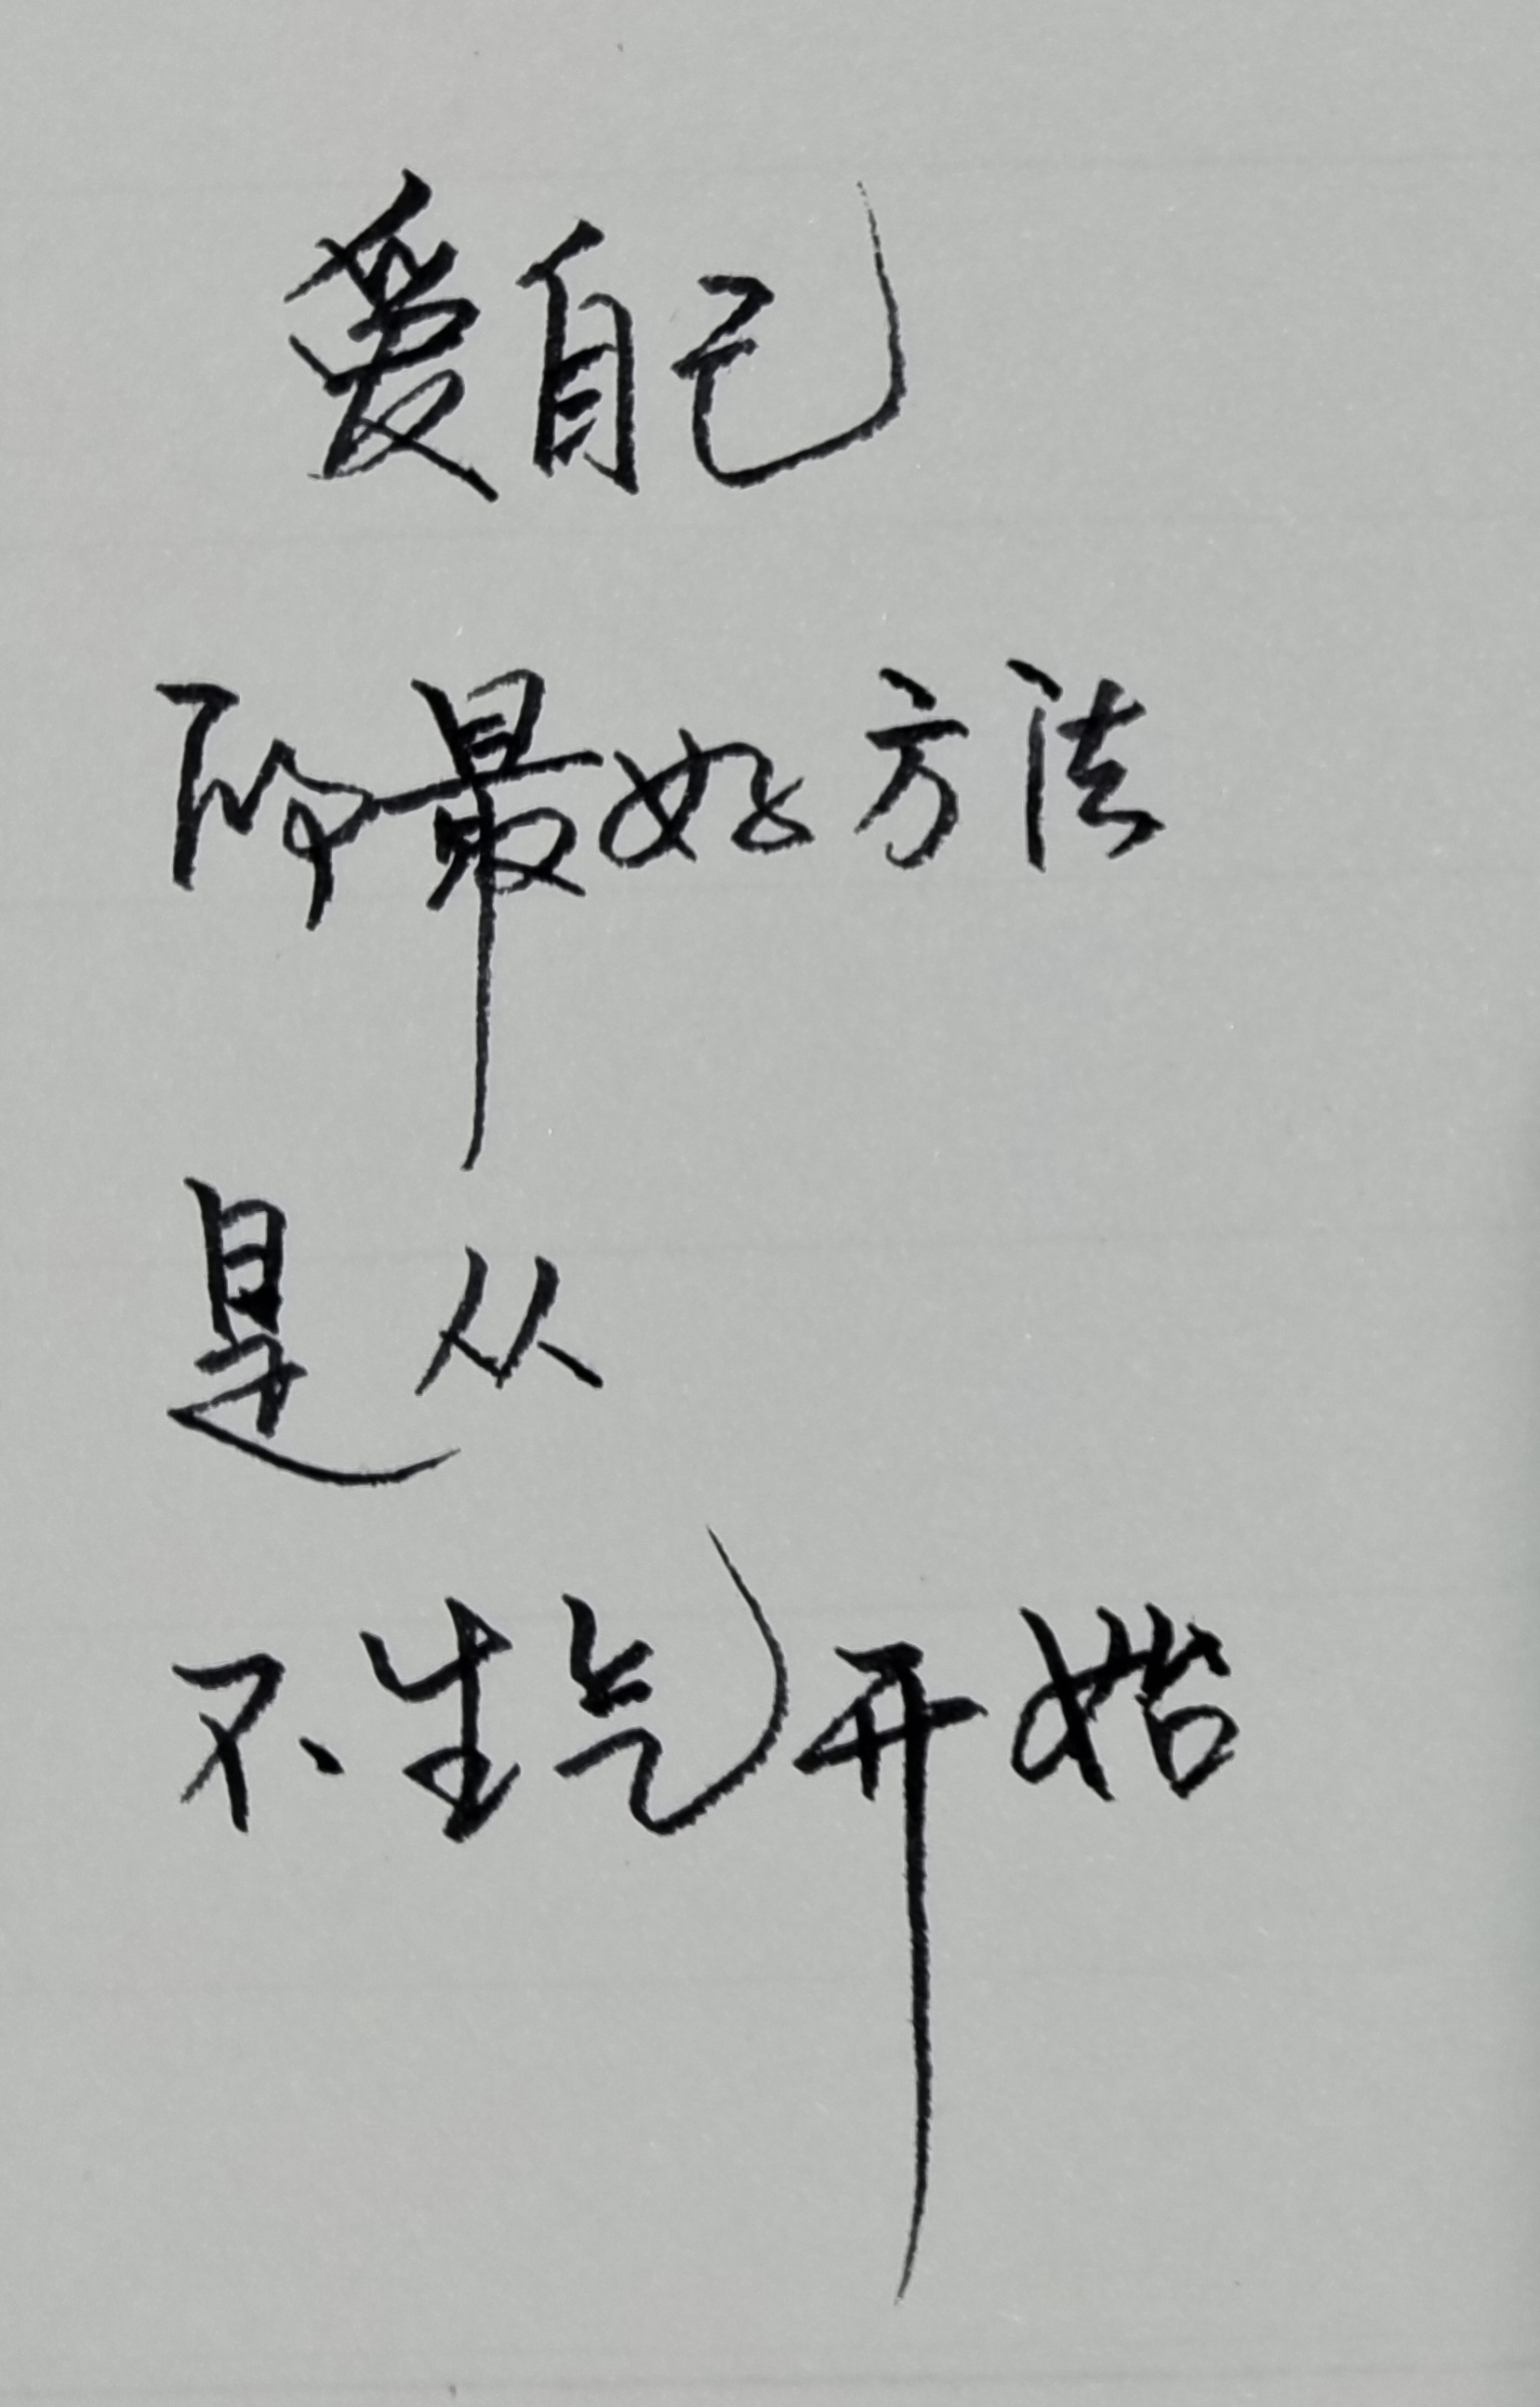 爱自己
的最好方法
是从
不生气开始